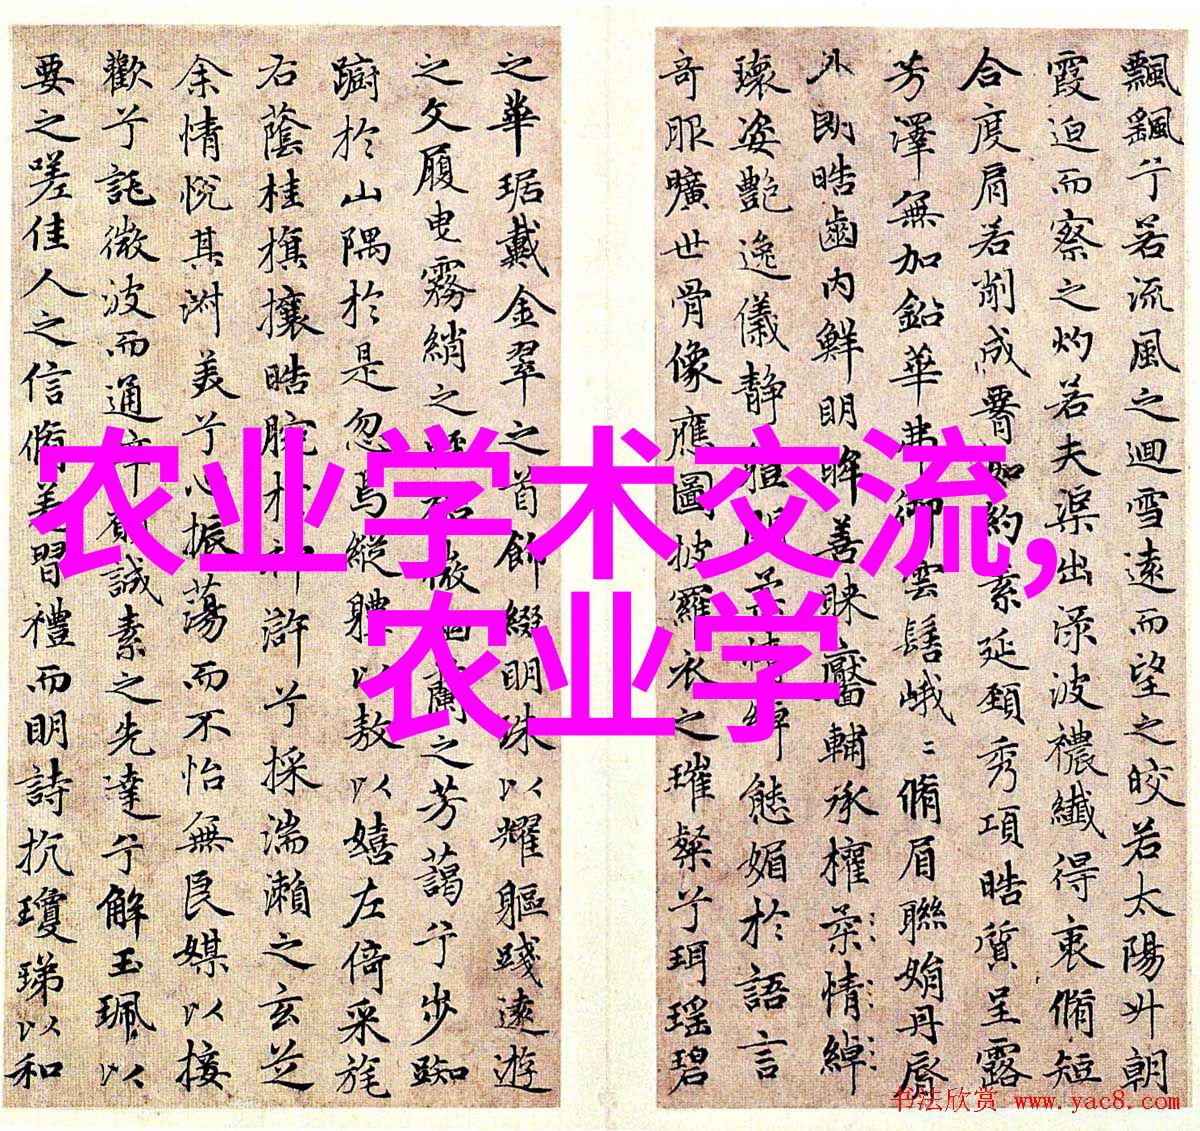 飄颻兮若流風之迴雪遠而望之皎若太陽升朝
霞迫而察之灼若夫渠出淥波襛纖得衷脩短
合度肩若削成腰如約素延頸秀項皓質呈露
芳澤無加鉛華弗御雲髻峨〻脩眉聯娟丹脣
外朗皓齒内鮮明眸善睞靨輔承權柔情綽
瓌姿艷逸儀静體閑柔情綽態媚於語言
奇服曠世骨像應圖披羅衣之璀粲兮珥瑶碧
之華琚戴金翠之首飾綴明珠以耀軀踐遠遊
之文履曳霧綃之輕裾微幽蘭之芳藹兮步踟
躕於山隅於是忽焉縱體以敖以嬉左倚采旄
右蔭桂旗攘皓腕於神滸兮採湍瀨之玄芝
余情悅其淑美兮心振蕩而不怡無良媒以接
歡兮託微波而通辭願誠素之先達兮解玉珮以
要之嗟佳人之信脩羌習禮而明詩抗瓊珶以和
农业学术交流,
农业学
书法欣赏 www.yac8.com